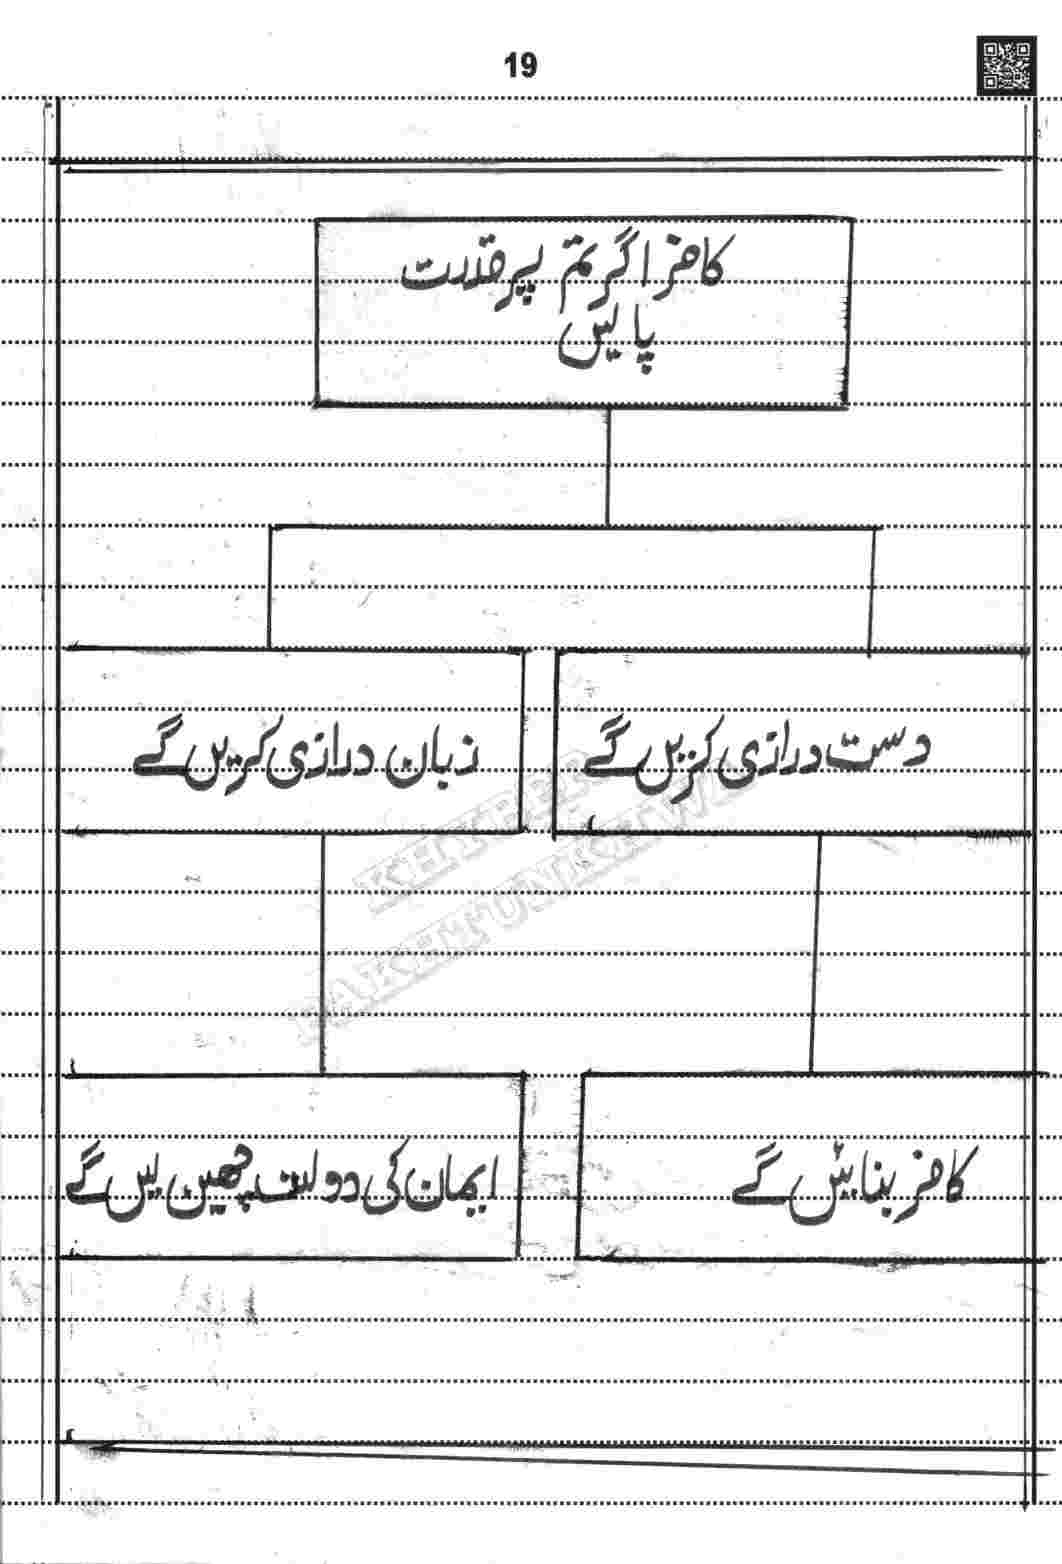 19
کافر اگر تم پر قدرت
پالیں
دست درازی کریں گے
زبان درازی کریں گے
KHYBER
PAKHTUNKHWA
کافر بنائیں گے
ایمان کی دولت چھین لیں گے